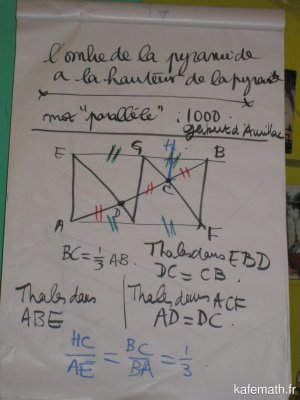 l'ombre de la pyramide
a la hauteur de la pyramide
mot "parallèle" : 1000
Gerbert d'Aurillac
E G H B
C
D
A F
BC = 1/3 AB.
Thales dans EBD
DC = CB.
Thales dans
ABE
Thales dans ACF
AD = DC.
HC/AE = BC/BA = 1/3
kafemath.fr